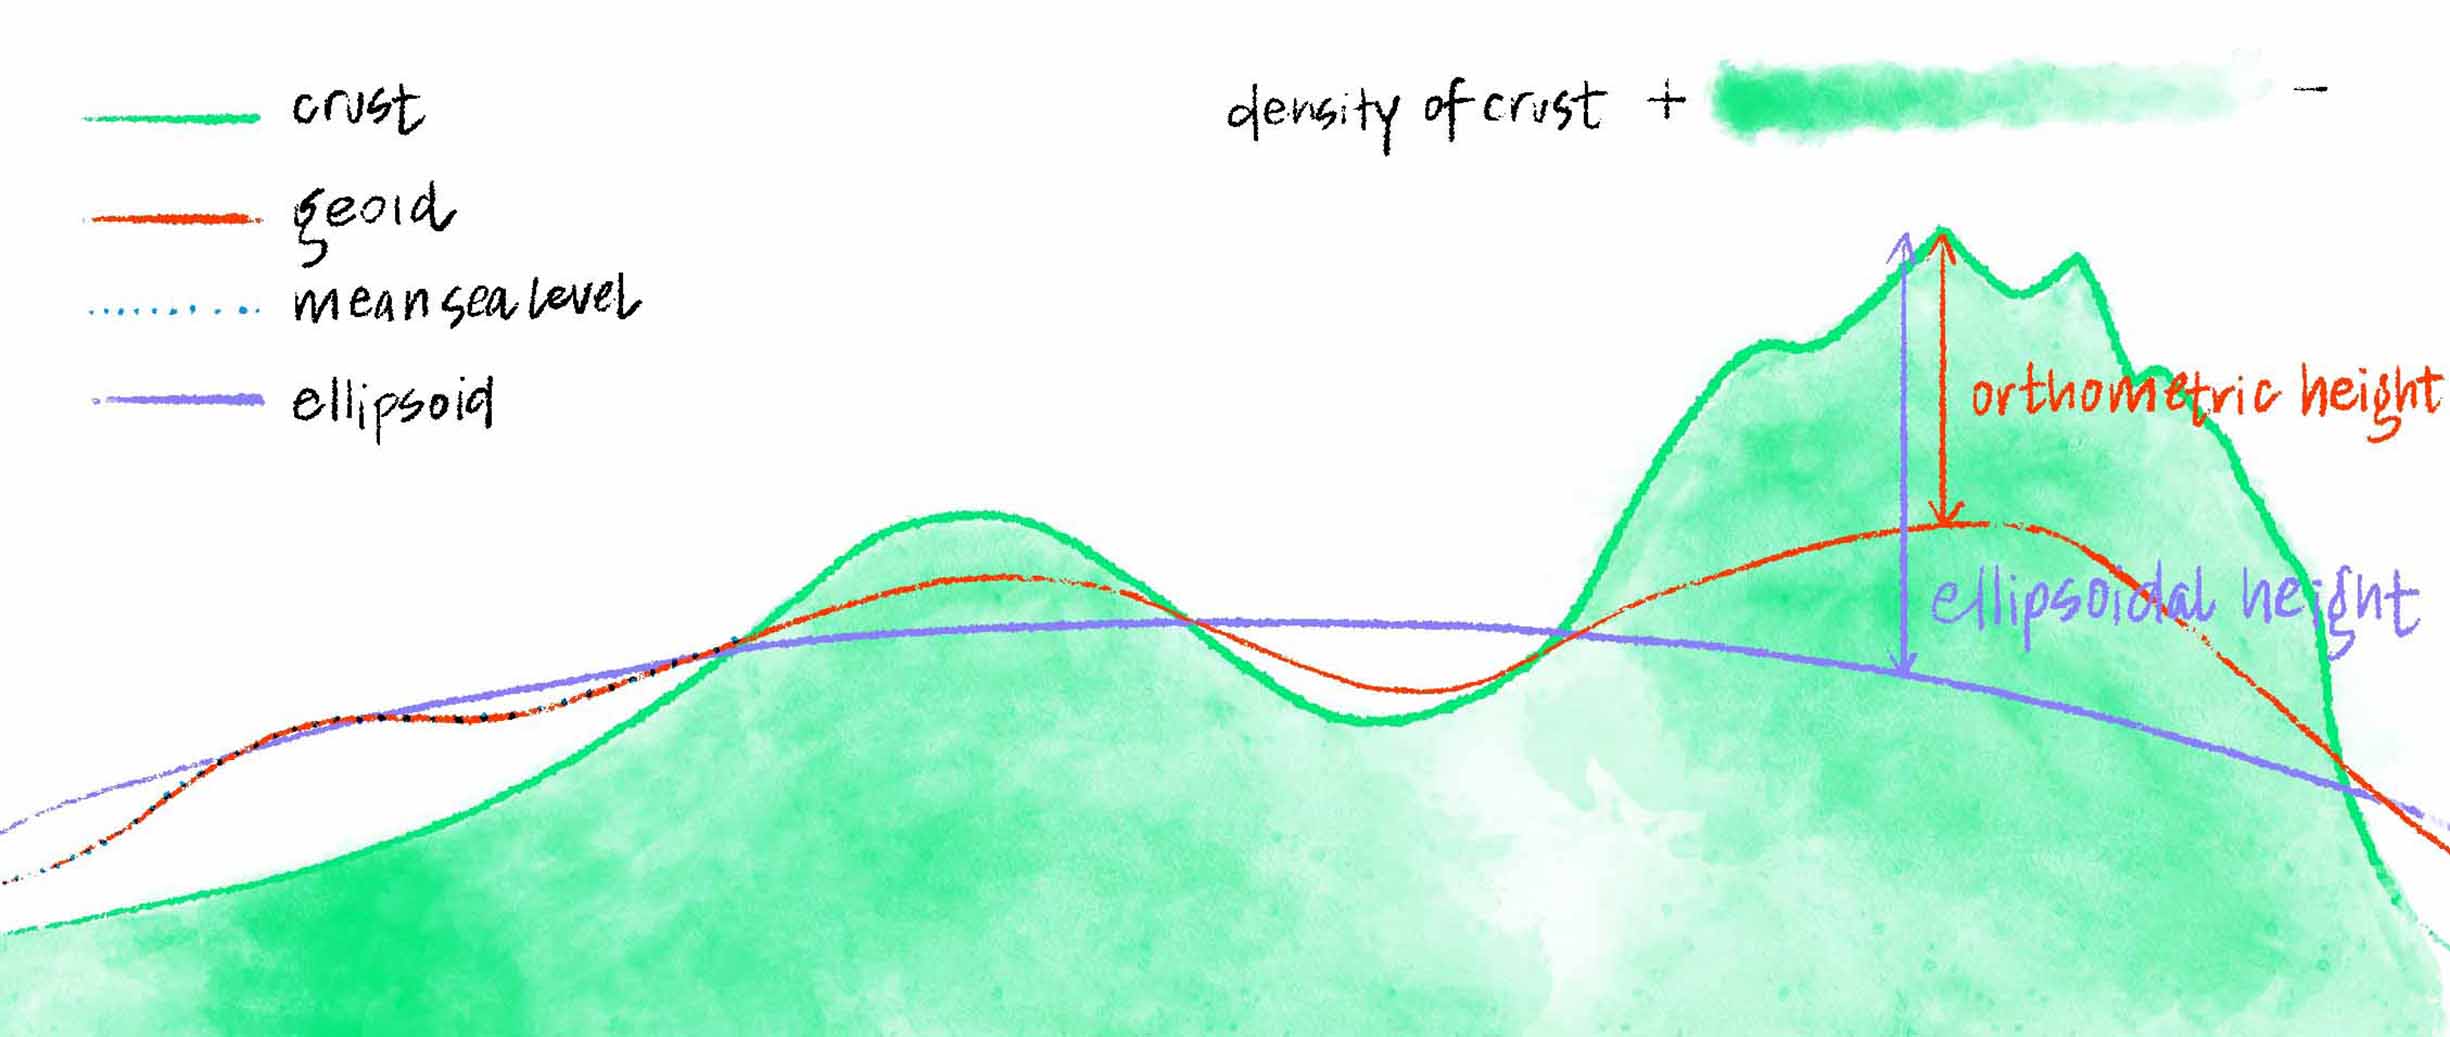 crust
geoid
mean sea level
ellipsoid
density of crust + -
orthometric height
ellipsoidal height